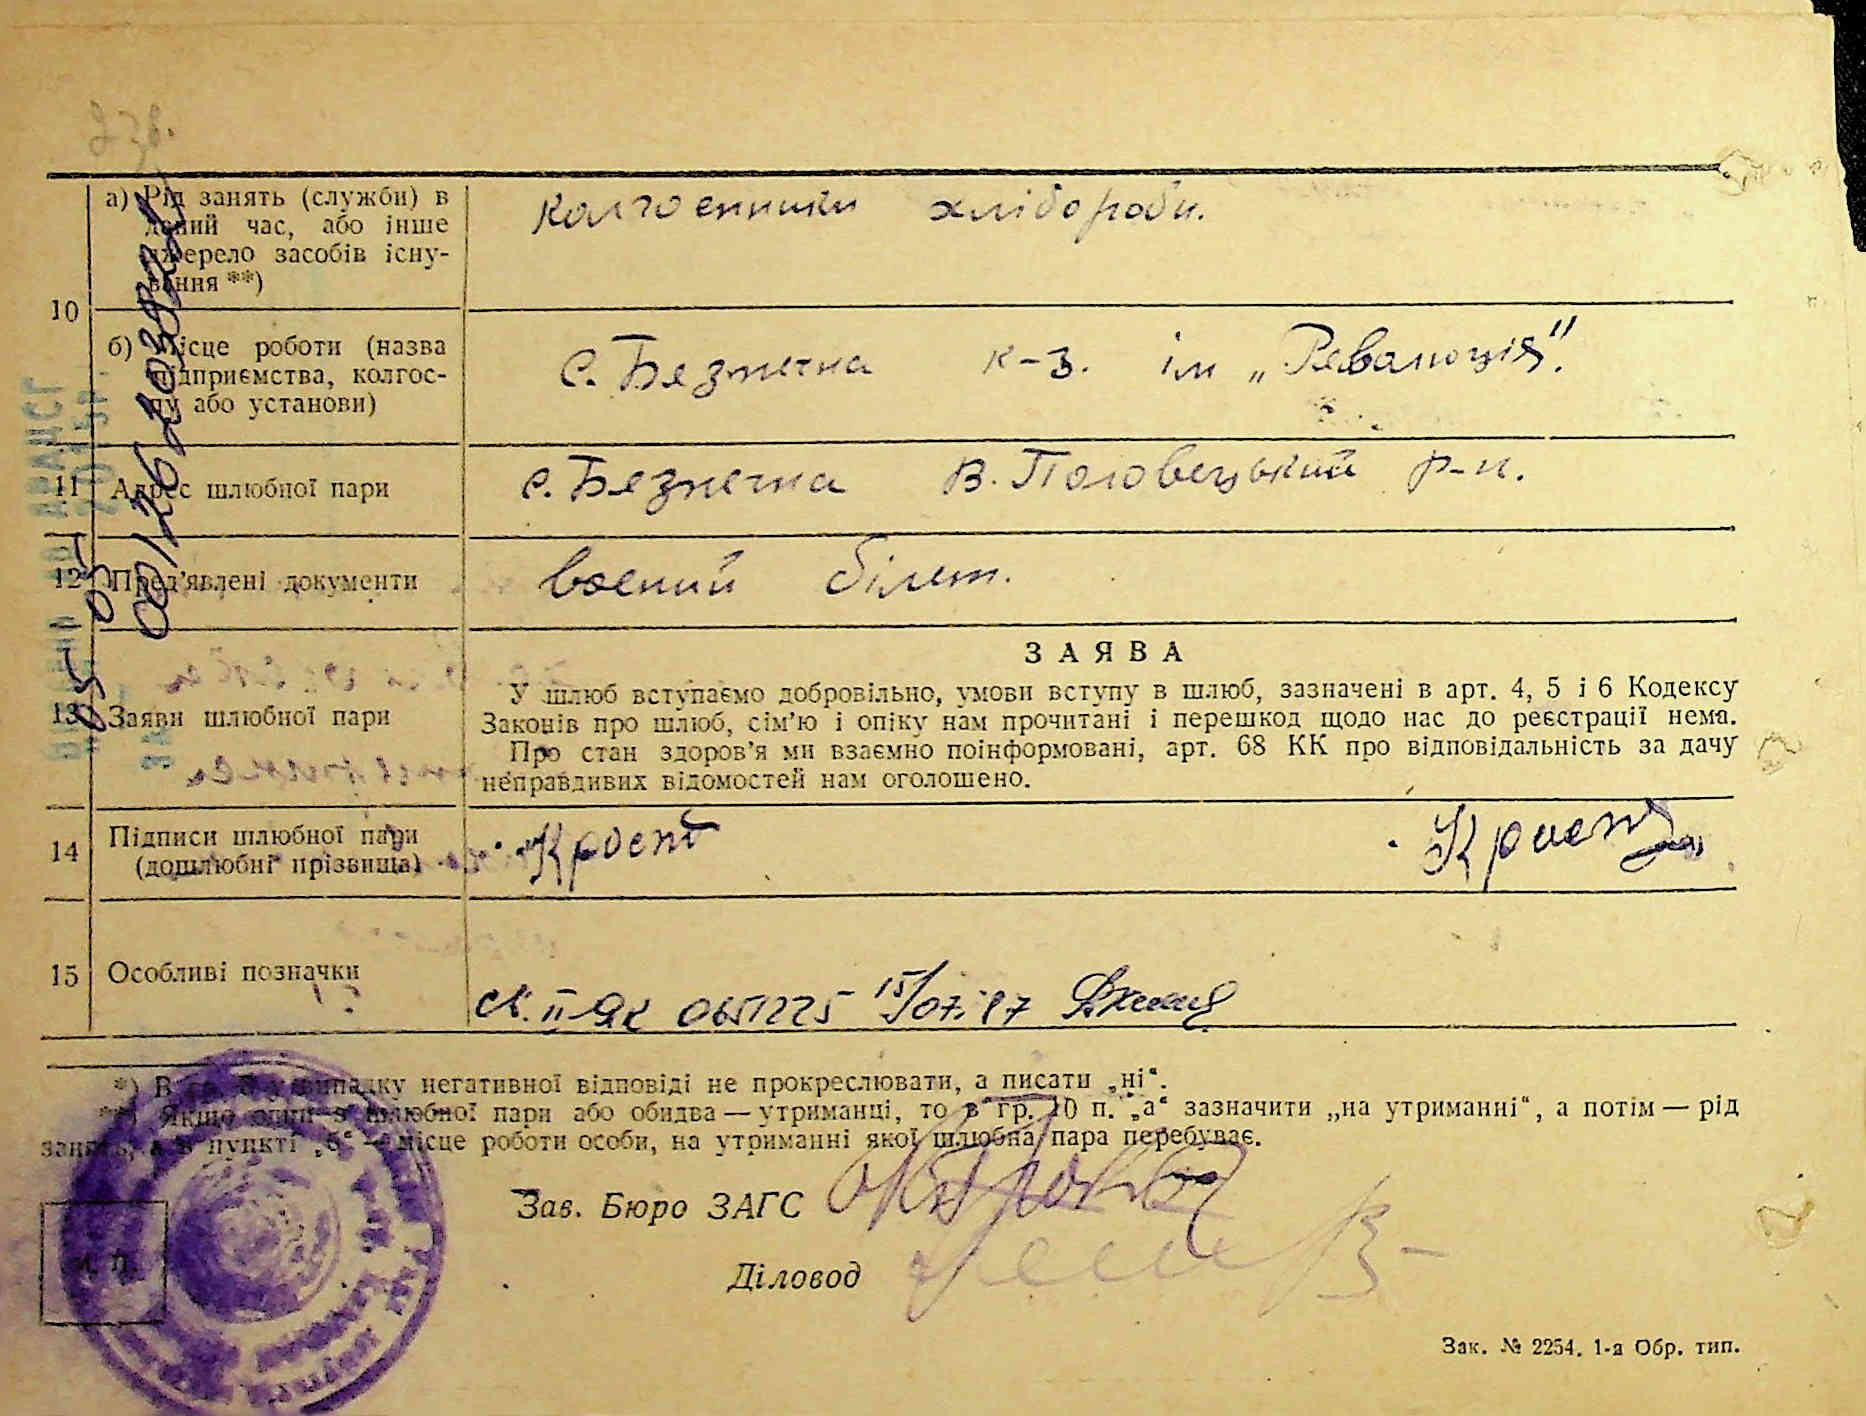 а) Рід занять (служби) в
даний час, або інше
джерело засобів існу-
вання **)
колгоспники хлібороби.
10
б) Місце роботи (назва
підприємства, колгос-
пу або установи)
с. Безпечна к-з. ім „Революція".
11 Адрес шлюбної пари
с. Безпечна В. Половецький р-н.
12 Пред'явлені документи
воєний білет.
ЗАЯВА
13 Заяви шлюбної пари
У шлюб вступаємо добровільно, умови вступу в шлюб, зазначені в арт. 4, 5 і 6 Кодексу
Законів про шлюб, сім'ю і опіку нам прочитані і перешкод щодо нас до реєстрації нема.
Про стан здоров'я ми взаємно поінформовані, арт. 68 КК про відповідальність за дачу
неправдивих відомостей нам оголошено.
14 Підписи шлюбної пари
(дошлюбні прізвища)
15 Особливі позначки
св. II-ЯК 0651225 15/07.87
*) В гр. у випадку негативної відповіді не прокреслювати, а писати „ні“.
**) Якщо один з шлюбної пари або обидва — утриманці, то в гр. 10 п. „а“ зазначити „на утриманні“, а потім — рід
занять, а в пункті „б“ — місце роботи особи, на утриманні якої шлюбна пара перебуває.
Зав. Бюро ЗАГС
Діловод
М. П.
Зак. № 2254. 1-а Обр. тип.